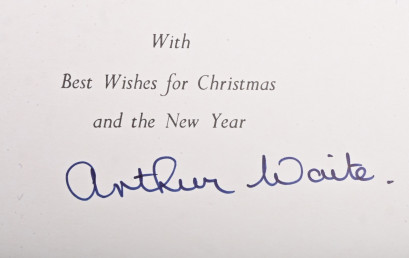 With
Best Wishes for Christmas
and the New Year
Arthur Waite.